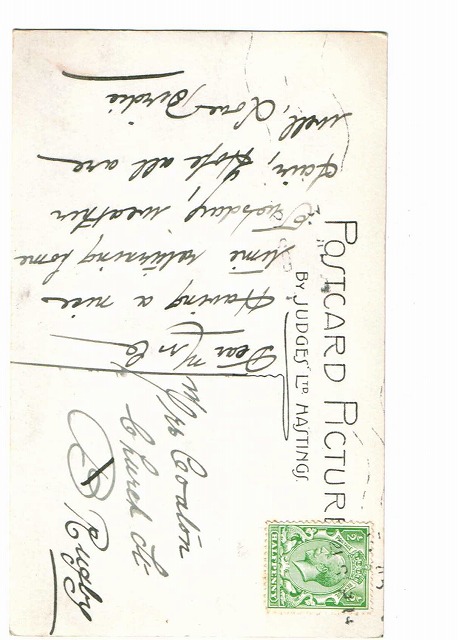 POSTCARD PICTURE
BY JUDGES' LTD HASTINGS.
Dear Mrs C
Having a nice
time returning home
Tuesday, weather
fair, Hope all are
well, Love Birdie
Mrs Coaton
Church St
Rugby
HALFPENNY